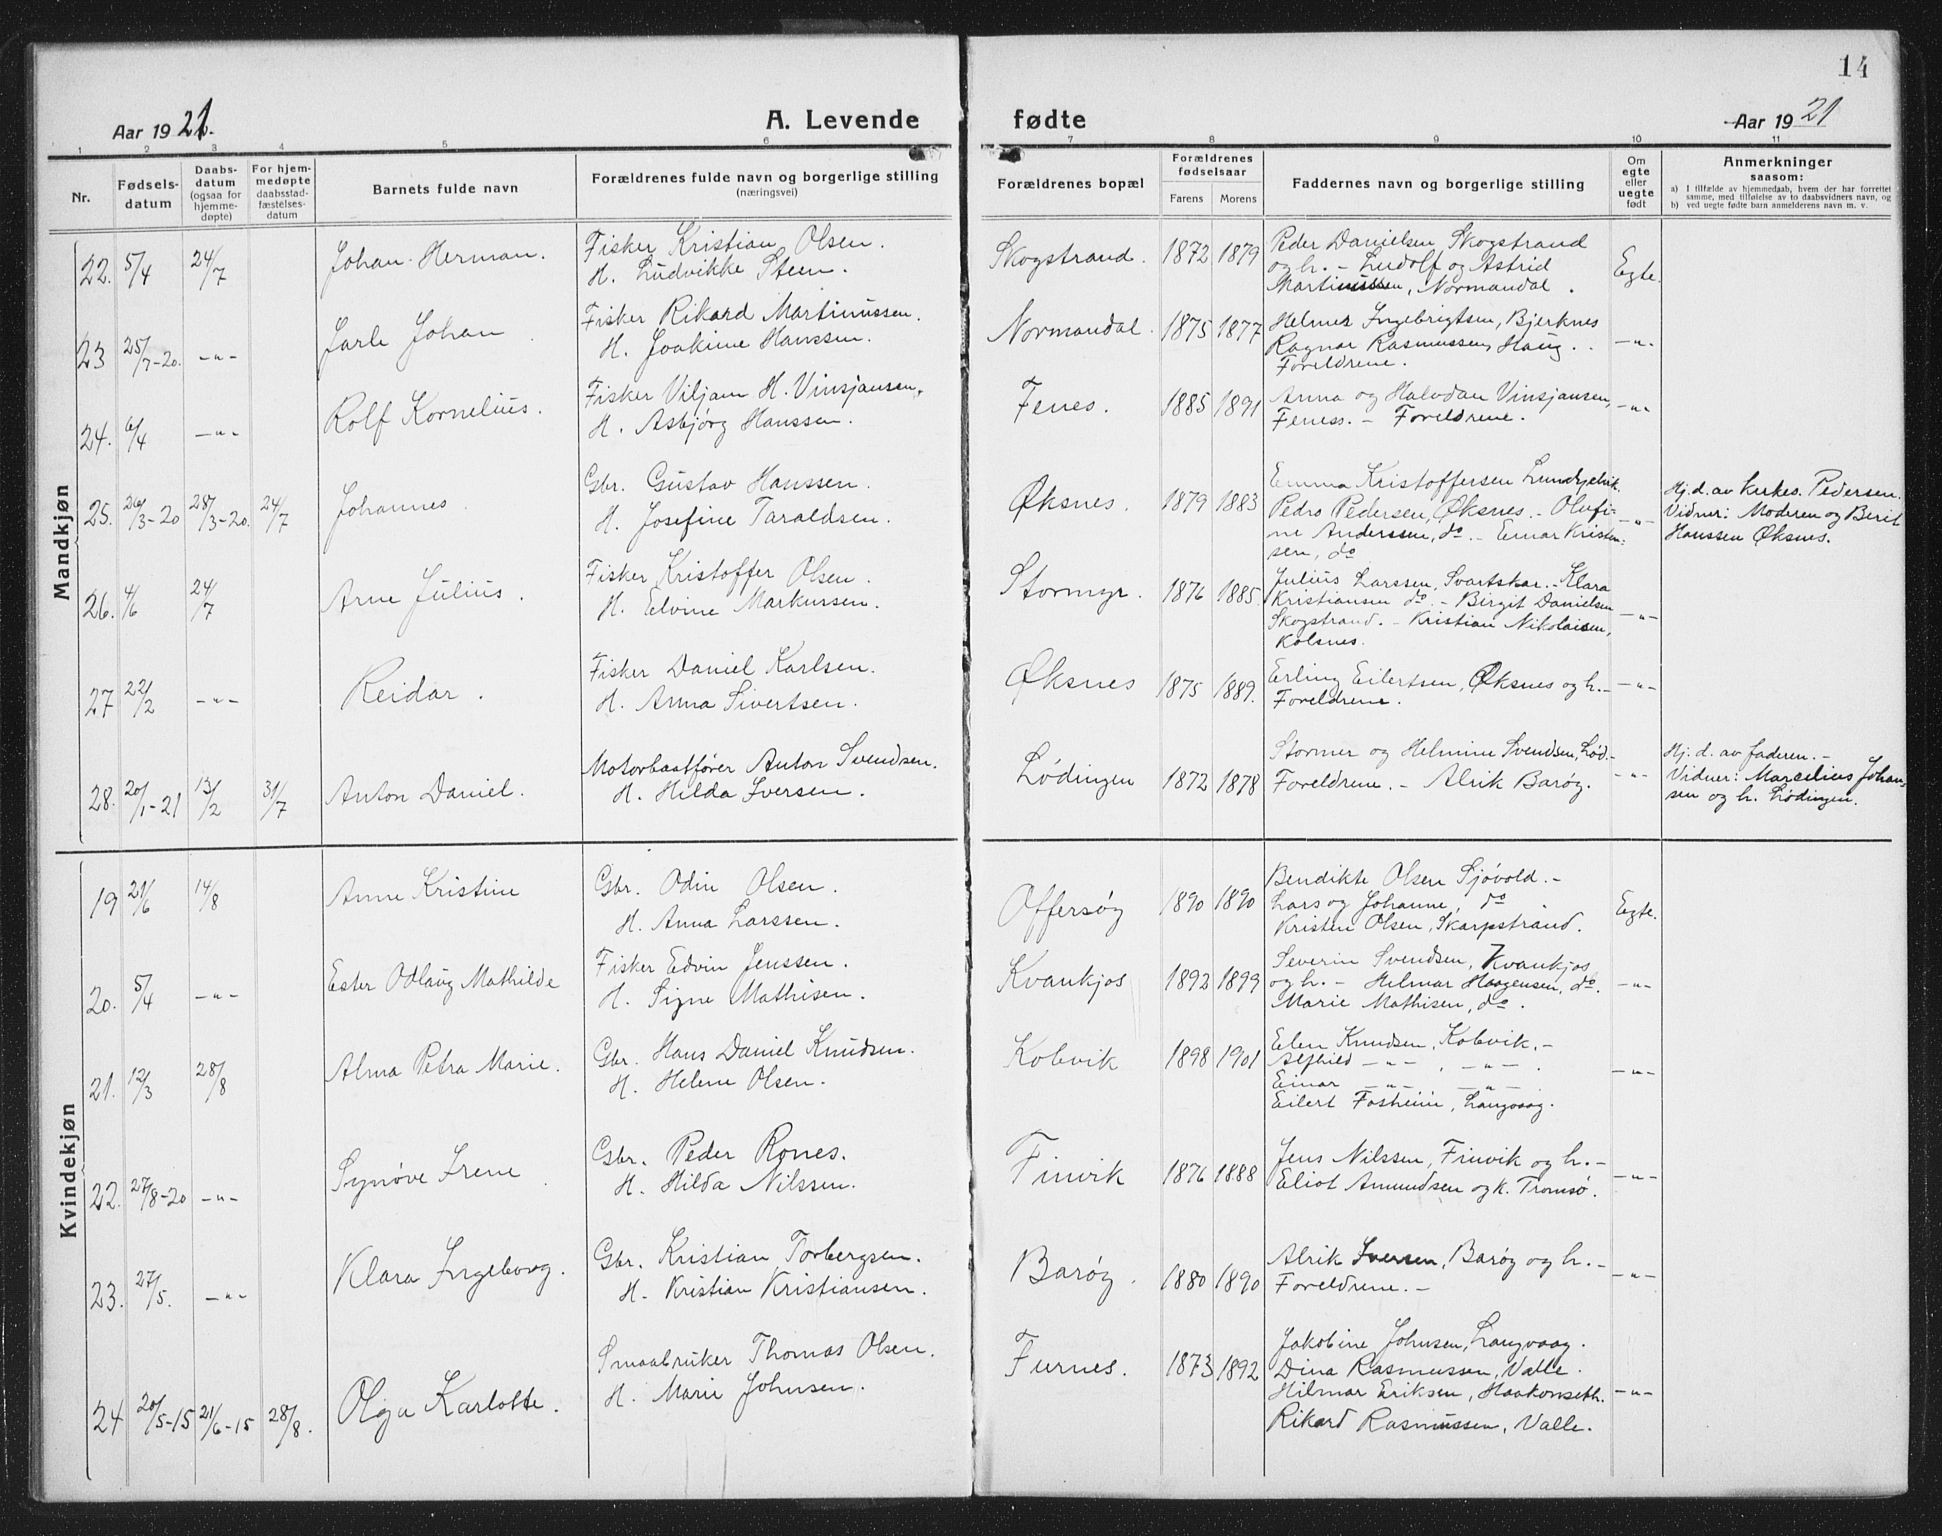 14
Aar 1921. A. Levende fødte Aar 1921
1 2 3 4 5 6 7 8 9 10 11
Nr. Fødselsdatum Daabsdatum (ogsaa for hjemmedøpte) For hjemmedøpte daabsstadfæstelsesdatum Barnets fulde navn Forældrenes fulde navn og borgerlige stilling (næringsvei) Forældrenes bopæl Forældrenes fødselsaar Farens Morens Faddernes navn og borgerlige stilling Om egte eller uegte født Anmerkninger saasom:
a) I tilfælde av hjemmedaab, hvem der har forrettet samme, med tilføielse av to daabsvidners navn, og
b) ved uegte fødte barn anmelderens navn m. v.
Mandkjøn
22. 5/4 24/7 Johan Herman. Fisker Kristian Olsen. Skogstrand. 1872 1879 Peder Danielsen, Skogstrand
H. Ludvikke Steen. og h. – Ludolf og Astrid Egte.
Martinussen, Normandal.
23 25/7-20. –"– Jarle Johan Fisker Rikard Martinussen. Normandal. 1875 1877 Helmer Ingebrigtsen, Bjerknes
H. Joakine Hanssen. Ragnar Rasmussen, Haug. –"–
Foreldrene.
24. 6/4 –"– Rolf Kornelius. Fisker Viljam H. Vinsjansen. Fenes. 1885 1891 Anna og Halvdan Vinsjansen, –"–
H. Asbjørg Hanssen. Feness. – Foreldrene.
25. 26/3-20 28/3-20. 24/7 Johannes. Gbr. Gustav Hanssen. Øksnes. 1879 1883 Emma Kristoffersen Lundkjelvik. Hj. d. av kirkes. Pedersen.
H. Josefine Taraldsen. Pedro Pedersen, Øksnes. – Olufi- –"– Vidner: Moderen og Berit
ne Anderssen, do. – Einar Kristen- Hanssen Øksnes.
sen, do
26. 4/6 24/7 Arne Julius. Fisker Kristoffer Olsen. Stormyr. 1876 1885. Julius Larssen, Svartskar. – Klara
H. Elvine Markussen. Kristiansen do. – Birgit Danielsen
Skogstrand. – Kristian Nikolaisen, –"–
Kolsnes.
27 22/2 –"– Reidar. Fisker Daniel Karlsen. Øksnes 1875 1889. Erling Eilertsen, Øksnes og h. – –"–
H. Anna Sivertsen. Foreldrene.
28. 20/1-21 13/2 31/7 Anton Daniel. Motorbaatfører Anton Svendsen. Lødingen 1872 1878 Stormer og Helmine Svendsen, Lød.– Hj. d. av faderen. –
H. Hilda Iversen. Foreldrene. – Alrik Barøg. –"– Vidner: Marcelius Johan-
sen og h. Lødingen.
Kvindekjøn
19 21/6 14/8 Anne Kristine Gbr. Odin Olsen. Offersøg 1890 1890 Bendikte Olsen Sjøvold. –
H. Anna Larssen. Lars og Johanne, do Egte.
Kristen Olsen, Skarpstrand.
20. 5/4 –"– Ester Odlaug Mathilde Fisker Edvin Jenssen. Kvankjos 1892 1899 Severin Svendsen, Kvankjos
H. Signe Mathisen. og h. – Helmar Haagensen, do. –"–
Marie Mathisen, do.
21. 12/3 28/8 Alma Petra Marie. Gbr. Hans Daniel Knudsen. Kobvik 1898 1901 Elen Knudsen, Kobvik. –
H. Helene Olsen. Alfhild –"– , –"– .
Einar –"– . –"– . –"–
Eilert Fosheim, Langvaag.
22. 27/8-20 –"– Synøve Irene Gbr. Peder Rones. Finvik 1876 1888 Jens Nilssen, Finvik og h. –
H. Hilda Nilssen. Eliot Amundsen og k. Tromsø. –"–
23. 27/5. –"– Klara Ingeborg. Gbr. Kristian Torbergsen. Barøg. 1880 1890 Alrik Iversen, Barøg og h. –
H. Kristian Kristiansen. Foreldrene. – –"–
24 20/5-15 21/6-15 28/8. Olga Karlotte. Smaabruker Thomas Olsen. Furnes. 1873 1892 Jakobine Johnsen, Langvaag.
H. Marie Johnsen. Dina Rasmussen, Valle.
Hilmar Eriksen, Haakonseth. –"–
Rikard Rasmussen, Valle.